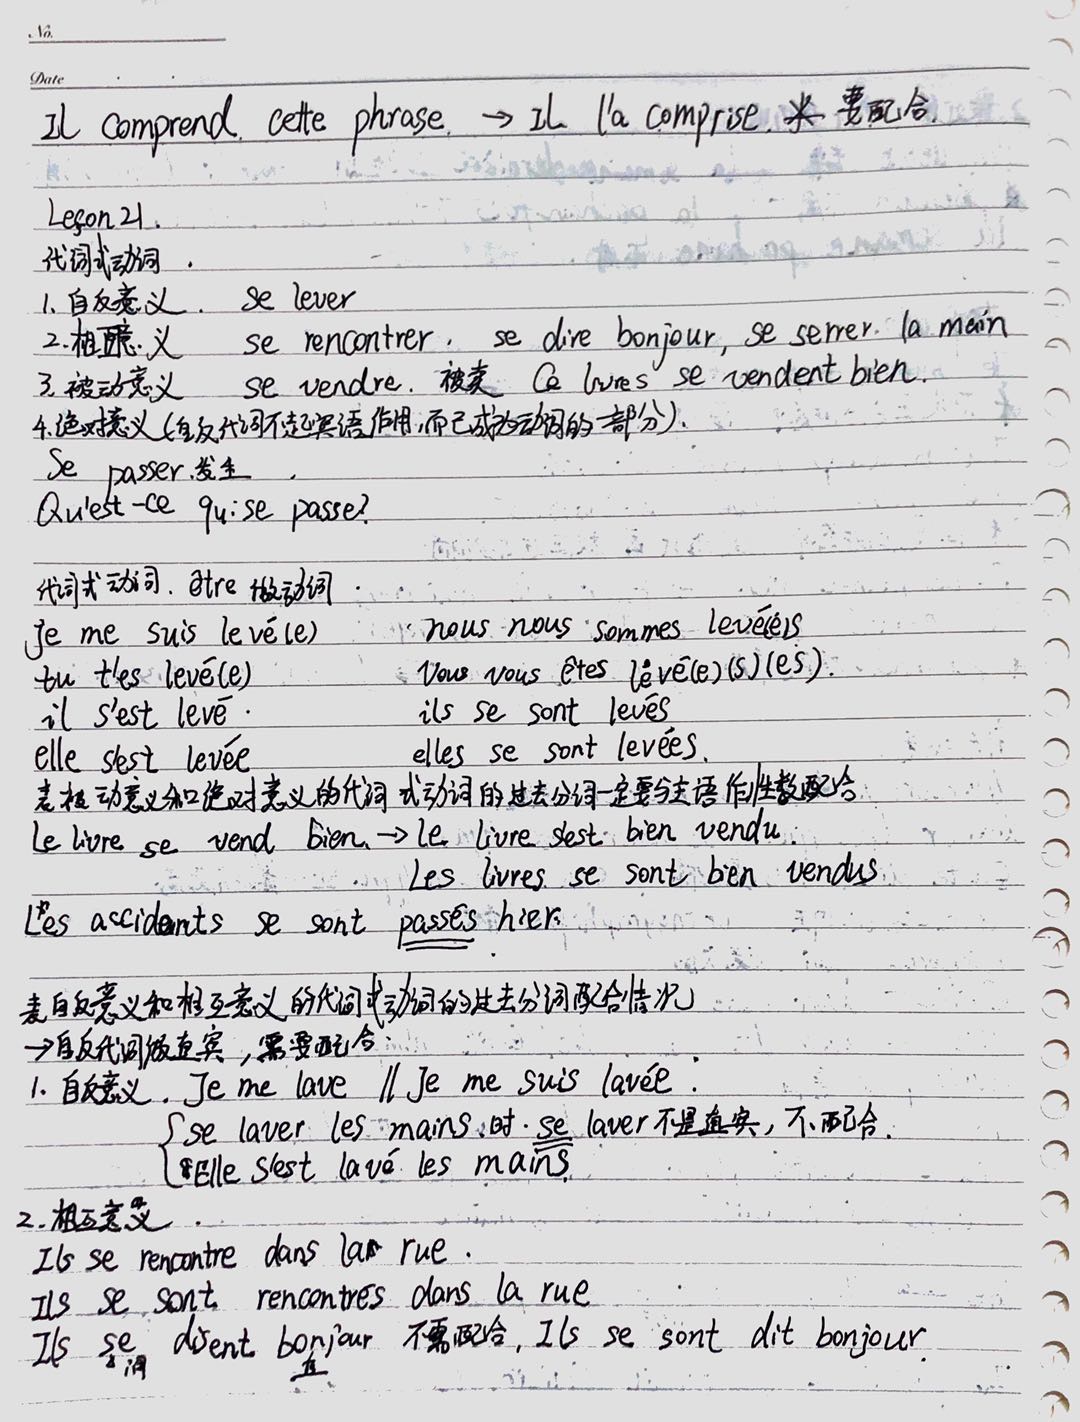 No.
Date
Il comprend cette phrase. → Il l'a comprise. * 要配合.
Leçon 21.
代词式动词.
1. 自反意义. se lever
2. 相互意义 se rencontrer. se dire bonjour, se serrer la main
3. 被动意义 se vendre. 被卖 Ce livres se vendent bien.
4. 绝对意义 (自反代词不起宾语作用,而已成为动词的一部分).
Se passer 发生.
Qu'est-ce qui se passe?
代词式动词. être 做动词.
Je me suis levé(e) nous nous sommes levé(e)s
tu t'es levé(e) Vous vous êtes levé(e)(s)(es).
il s'est levé. ils se sont levés
elle s'est levée elles se sont levées.
表被动意义和绝对意义的代词式动词的过去分词一定要与主语作性数配合
Le livre se vend bien. → Le livre s'est bien vendu.
Les livres se sont bien vendus
Les accidents se sont passés hier.
表自反意义和相互意义的代词式动词的过去分词配合情况
→自反代词做直宾,需要配合.
1. 自反意义. Je me lave // Je me suis lavée.
se laver les mains 时. se laver 不是直宾, 不配合.
Elle s'est lavé les mains.
2. 相互意义.
Ils se rencontre dans la rue.
Ils se sont rencontrés dans la rue
Ils se disent bonjour 不需配合, Ils se sont dit bonjour.
间 直